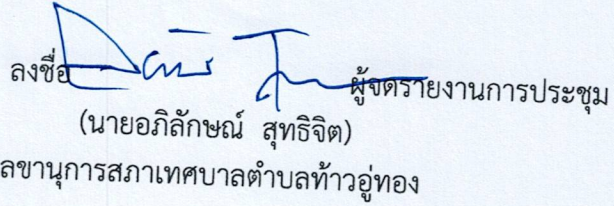 ลงชื่อ ผู้จดรายงานการประชุม
(นายอภิลักษณ์ สุทธิจิต)
ลขานุการสภาเทศบาลตำบลท้าวอู่ทอง